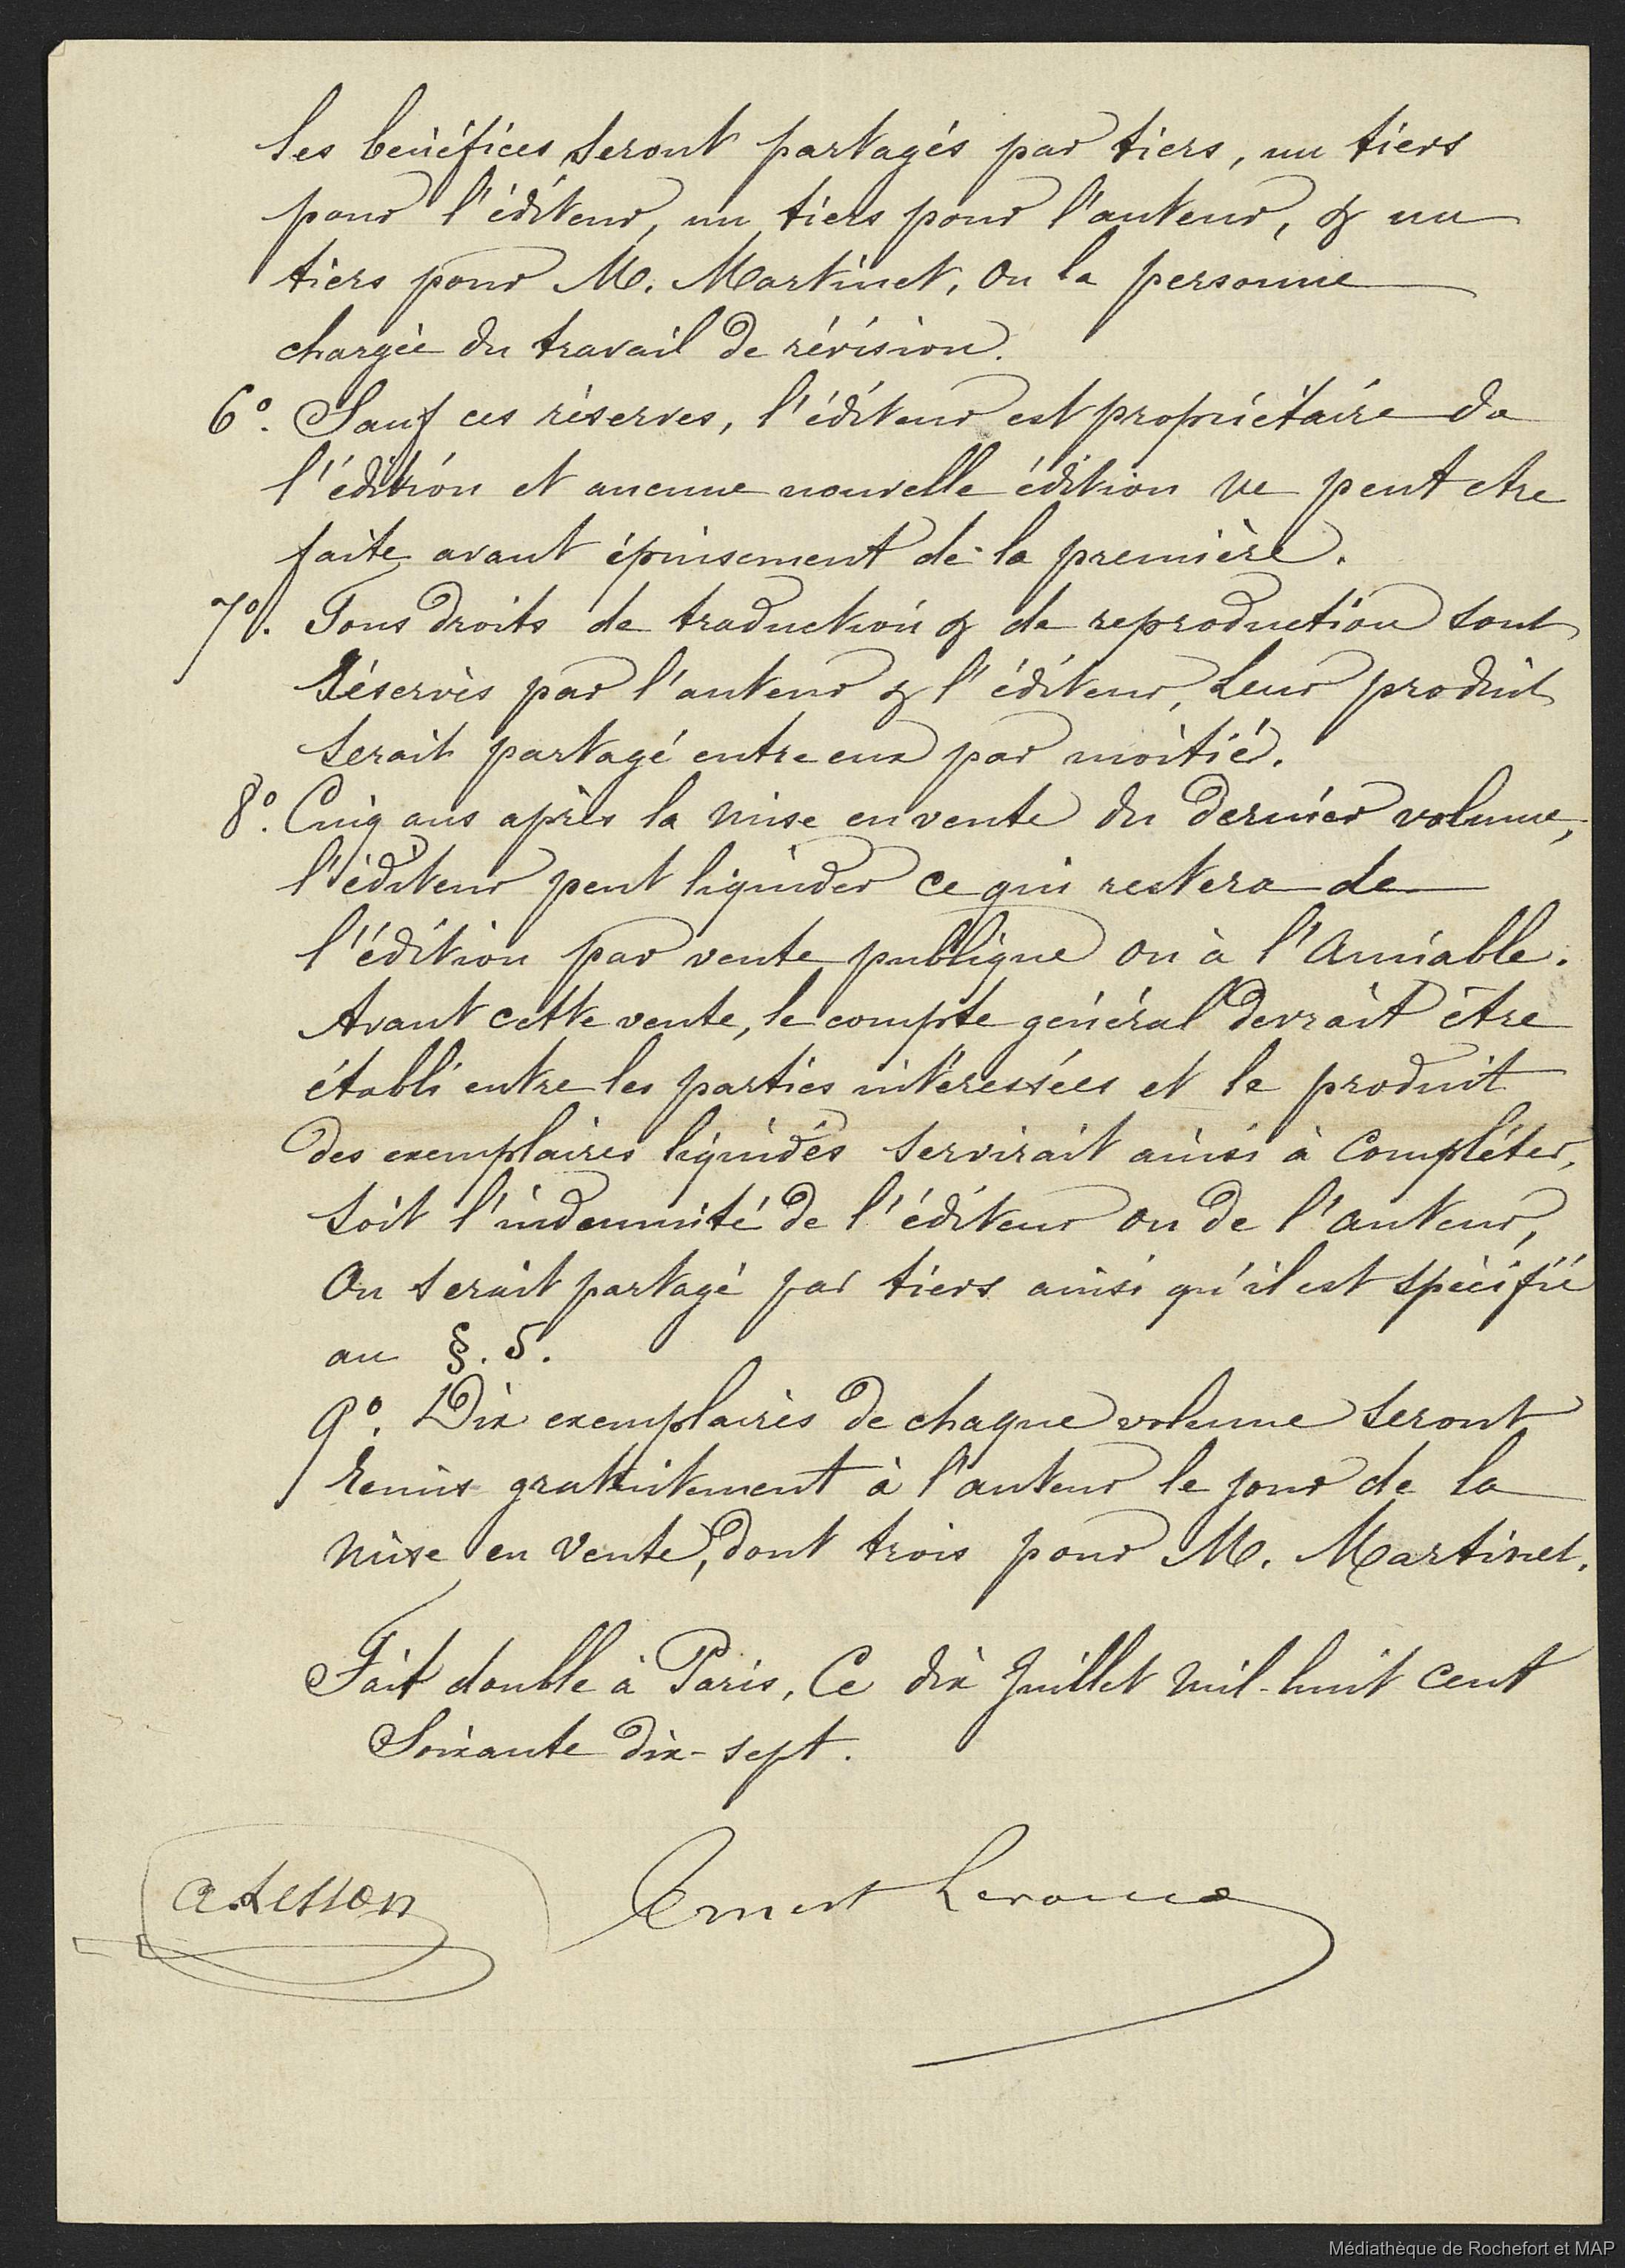 les bénéfices seront partagés par tiers, un tiers
pour l'éditeur, un tiers pour l'auteur, & un
tiers pour M. Martinet, ou la personne
chargée du travail de révision.
6º. Sauf ces réserves, l'éditeur est propriétaire de
l'édition et aucune nouvelle édition ne peut etre
faite avant épuisement de la première.
7º. Tous droits de traduction & de reproduction sont
réservés par l'auteur & l'éditeur, leur produit
serait partagé entre eux par moitié.
8º. Cinq ans après la mise en vente du dernier volume,
l'éditeur peut liquider ce qui restera de
l'édition par vente publique ou à l'amiable.
Avant cette vente, le compte général devrait être
établi entre les parties intéressées et le produit
des exemplaires liquidés servirait ainsi à compléter,
soit l'indemnité de l'éditeur ou de l'auteur,
ou serait partagé par tiers ainsi qu'il est spécifié
au §. 5.
9º. Dix exemplaires de chaque volume seront
remis gratuitement à l'auteur le jour de la
mise en vente, dont trois pour M. Martinet.
Fait double à Paris, Ce dix Juillet mil-huit cent
Soixante dix-sept.
A. Lesson Ernest Leroux
Médiathèque de Rochefort et MAP